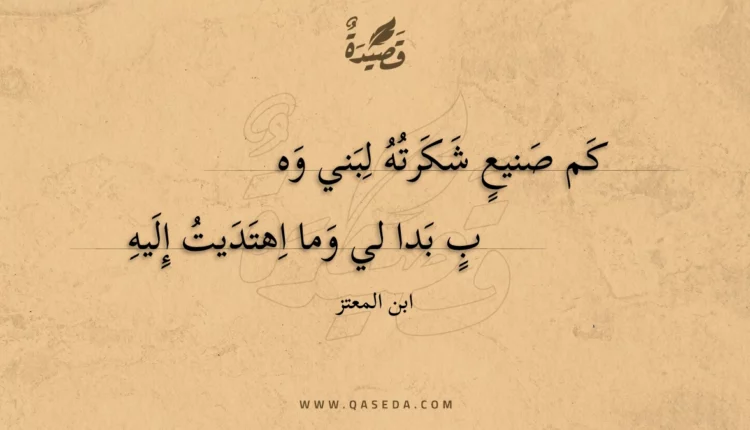 قَصِيْدَةٌ
كَم صَنيعٍ شَكَرتُهُ لِبَني وَه
بٍ بَدا لي وَما اِهتَدَيتُ إِلَيهِ
ابن المعتز
WWW.QASEDA.COM